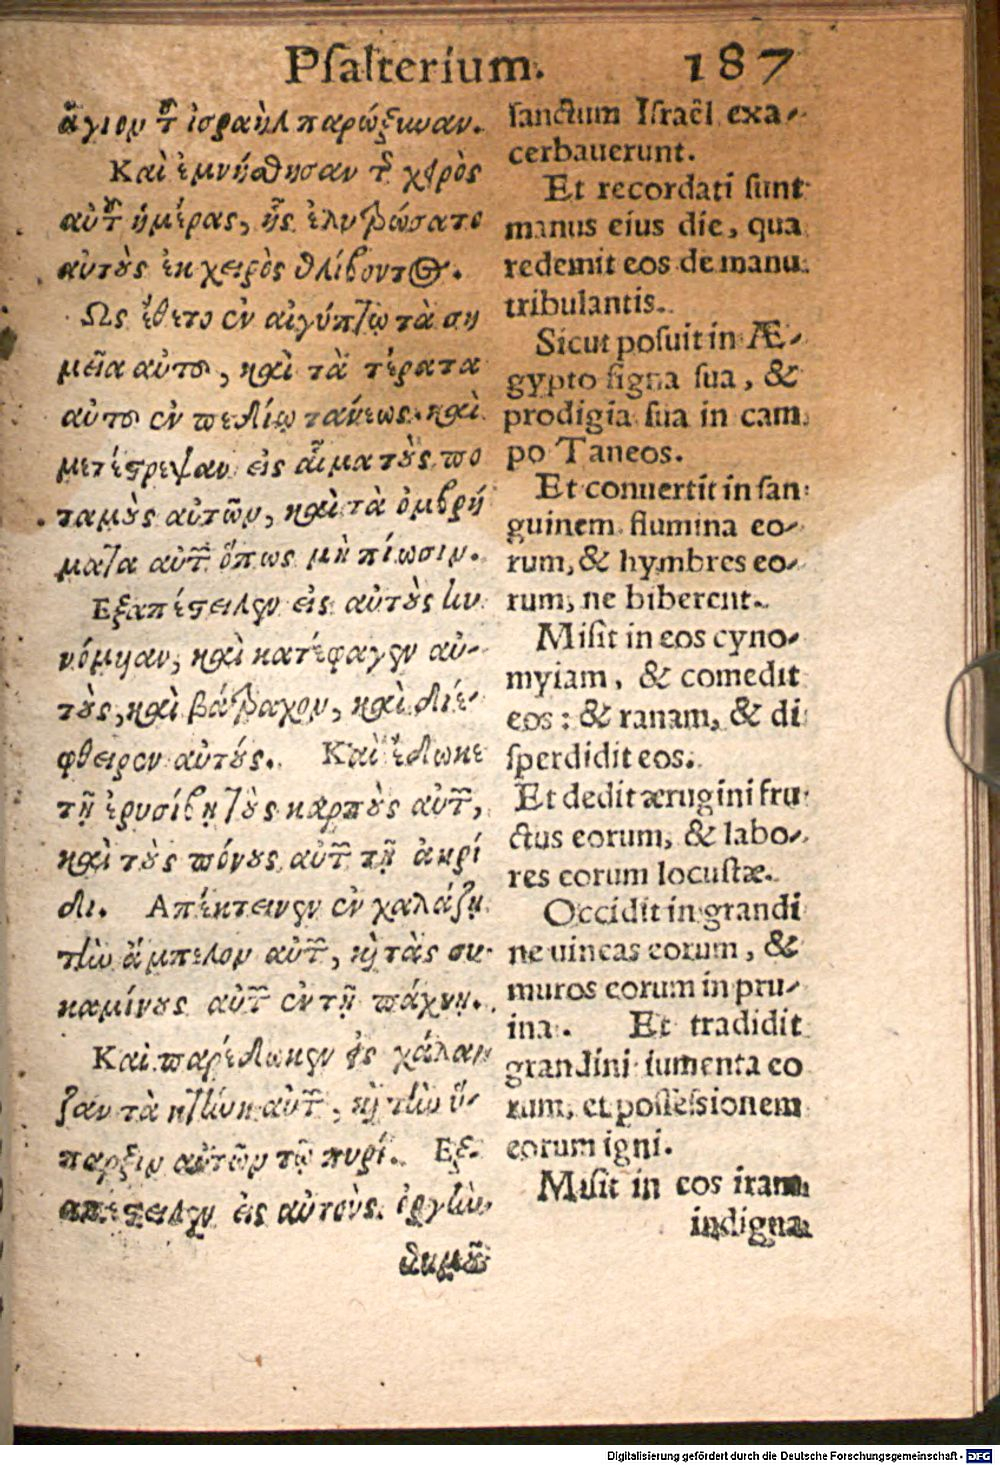 Psalterium. 187
ἅγιον τ͂ ἰσραὴλ παρώξιωαν.
Καὶ ἐμνήσθησαν τ͂ χειρὸς
αὐτ͂ ἡμέρας, ἧς ἐλυτρώσατο
αὐτοὺς ἐκ χειρὸς θλίβοντος.
Ως ἔθετο ἐν αἰγύπτῳ τὰ ση
μεῖα αὐτοῦ, καὶ τὰ τέρατα
αὐτοῦ ἐν πεδίῳ τάνεως. καὶ
μετέστρεψαν εἰς αἷμα τοὺς πο
ταμοὺς αὐτῶν, καὶ τὰ ὀμβρή
ματα αὐτῶν ὅπως μὴ πίωσιν.
Εξαπέστειλεν εἰς αὐτοὺς κυ
νόμυαν, καὶ κατέφαγεν αὐ-
τούς, καὶ βάτραχον, καὶ διέ-
φθειρεν αὐτούς. Καὶ ἔδωκε
τῇ ἐρυσίβῃ τοὺς καρποὺς αὐτῶν,
καὶ τοὺς πόνους αὐτῶν τῇ ἀκρί
δι. Απέκτεινεν ἐν χαλάζῃ
τὴν ἄμπελον αὐτῶν, καὶ τὰς συ-
καμίνους αὐτῶν ἐν τῇ πάχνῃ.
Καὶ παρέδωκεν εἰς χάλαν
ζαν τὰ κτήνη αὐτῶν, καὶ τὴν ὕ-
παρξιν αὐτῶν τῷ πυρί. Εξ-
απέστειλεν εἰς αὐτοὺς ὀργὴν
θυμοῦ
sanctum Israël exa-
cerbauerunt.
Et recordati sunt
manus eius die, qua
redemit eos de manu
tribulantis.
Sicut posuit in Æ-
gypto signa sua, &
prodigia sua in cam
po Taneos.
Et conuertit in san
guinem flumina eo-
rum, & hymbres eo-
rum, ne biberent.
Misit in eos cyno-
myiam, & comedit
eos: & ranam, & di
sperdidit eos.
Et dedit ærugini fru
ctus eorum, & labo-
res eorum locustæ.
Occidit in grandi
ne uineas eorum, &
muros eorum in pru-
ina. Et tradidit
grandini iumenta eo
rum, et possessionem
eorum igni.
Misit in eos iram
indigna
Digitalisierung gefördert durch die Deutsche Forschungsgemeinschaft - DFG